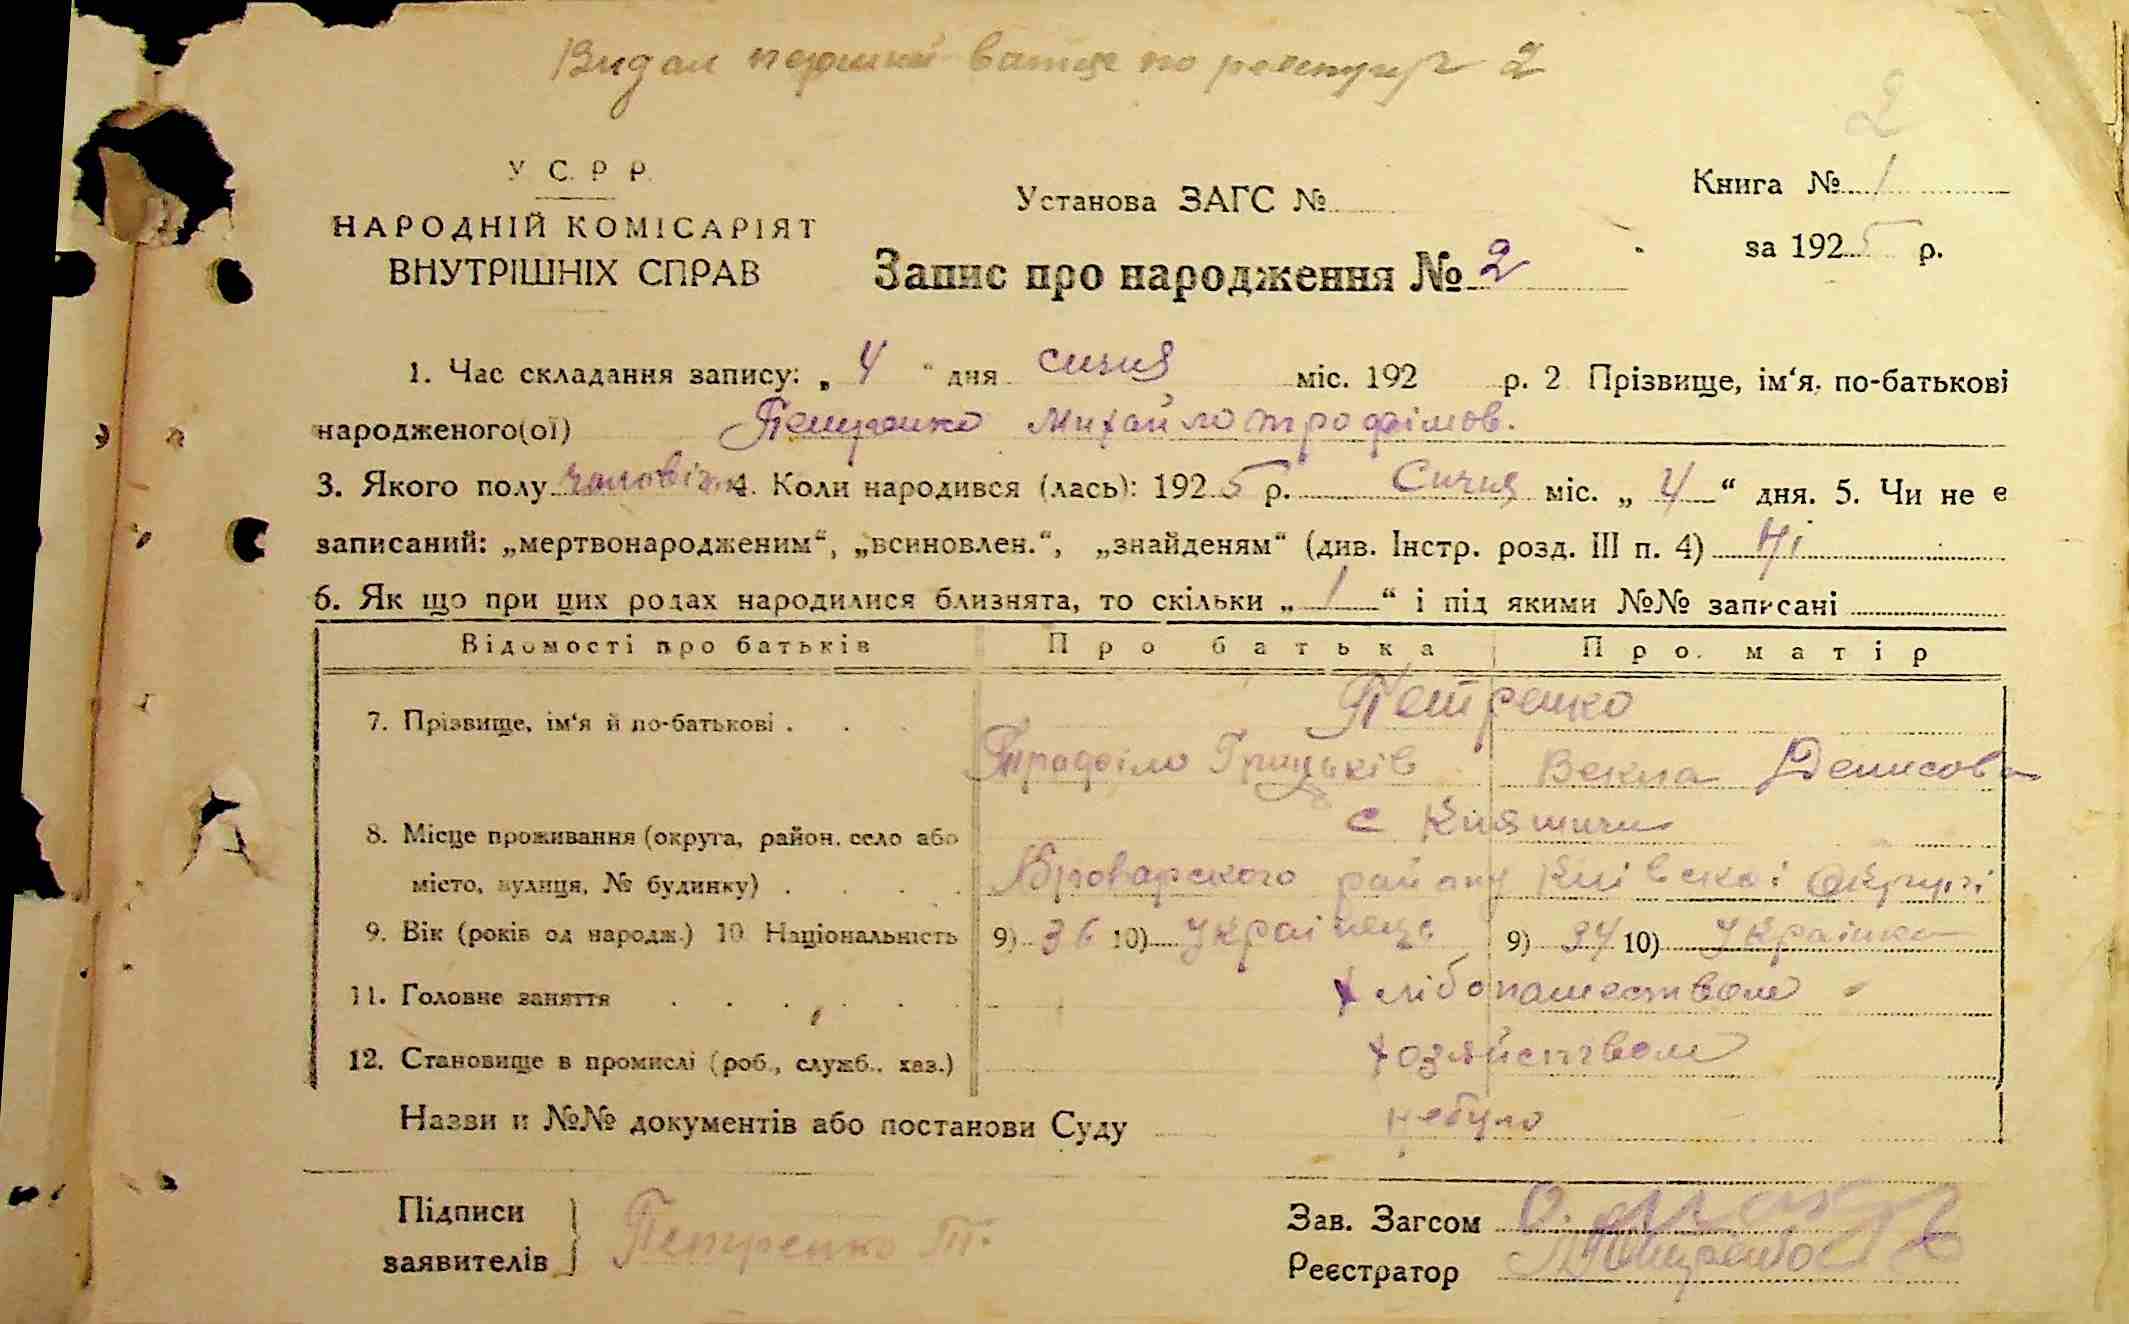 Видал перший по реєстру 2
2
У С. Р Р.
НАРОДНІЙ КОМІСАРІЯТ
ВНУТРІШНІХ СПРАВ
Установа ЗАГС №
Запис про народження № 2
Книга № 1
за 1925 р.
1. Час складання запису: „ 4 " дня сичня міс. 192 р. 2 Прізвище, ім‘я, по-батькові
народженого(ої) Петренко Михайло трофімов.
3. Якого полу чоловіч. 4. Коли народився (лась): 1925 р. Сичня міс. „ 4 “ дня. 5. Чи не є
записаний: „мертвонародженим“, „всиновлен.“, „знайденям“ (див. Інстр. розд. III п. 4) Ні
6. Як що при цих родах народилися близнята, то скільки „ 1 “ і під якими №№ записані
Відомості про батьків Про батька Про матір
7. Прізвище, ім‘я й по-батькові . . . Петренко
Траффім Грицьків Векла Денисова
8. Місце проживання (округа, район, село або с Княжичи
місто, вулиця, № будинку) . . . . Броварского району Київскоі Округі
9. Вік (років од народж.) 10 Національність 9) 36 10) Украінець 9) 34 10) Украінка
11. Головне заняття . . . . . . хлібопашеством
12. Становище в промислі (роб., служб., хаз.) хозяйством
Назви й №№ документів або постанови Суду небуло
Підписи
заявителів
Петренко Т.
Зав. Загсом
Реєстратор Петренко